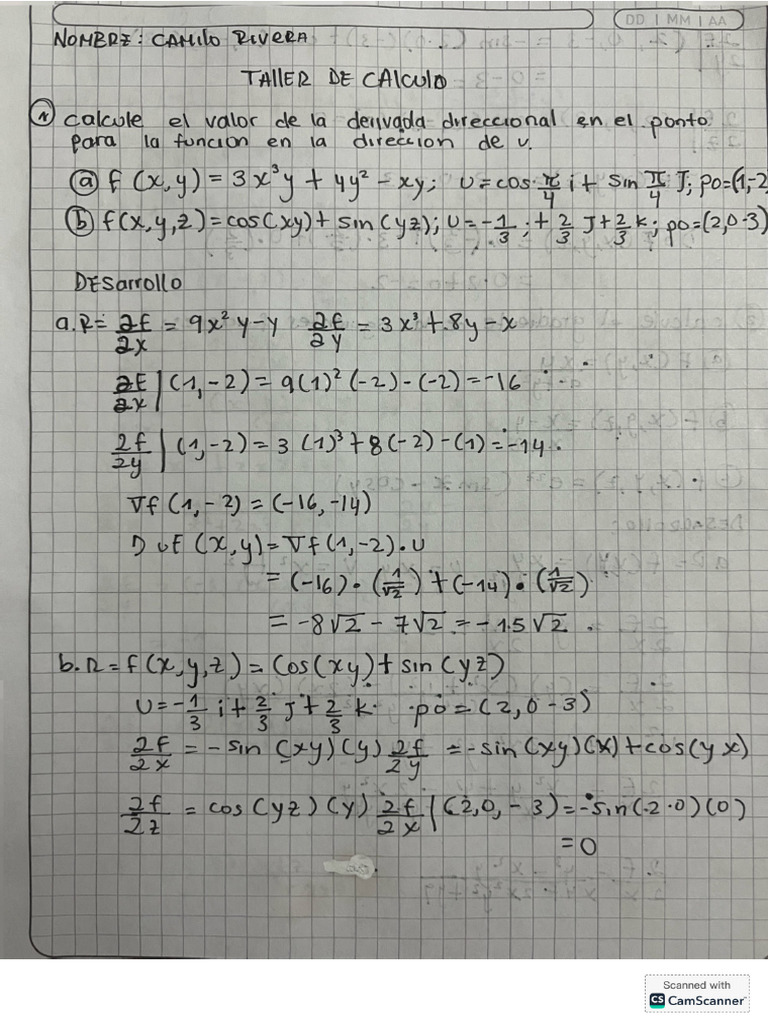 DD | MM | AA
NOMBRE: CAMILO RIVERA
TALLER DE CALCULO
① calcule el valor de la derivada direccional en el ponto
para la funcion en la direccion de u.
ⓐ f (x,y) = 3x³y + 4y² - xy; U = cos π/4 i + sin π/4 J; po=(1,-2
ⓑ f(x,y,z)=cos(xy)+ sin(yz); U = -1/3 ; + 2/3 J + 2/3 k; po=(2,0-3)
DESarrollo
a. R= ∂f/∂x = 9x²y-y ∂f/∂y = 3x³+8y-x
∂f/∂x | (1,-2) = 9(1)² (-2) - (-2) = -16
∂f/∂y | (1,-2) = 3 (1)³ + 8(-2) - (1) = -14.
∇f (1,-2) = (-16,-14)
D uf (x,y) = ∇f (1,-2) . U
= (-16) . (1/√2) + (-14) . (1/√2)
= -8√2 - 7√2 = -15√2 .
b. R = f(x,y,z) = cos(xy) + sin(yz)
U = -1/3 i + 2/3 J + 2/3 k. po = (2,0-3)
∂f/∂x = -sin (xy)(y) ∂f/∂y = -sin(xy)(x)+cos(yx)
∂f/∂z = cos(yz)(y) ∂f/∂x | (2,0,-3) = -sin(2·0)(0)
= 0
Scanned with
CS CamScanner